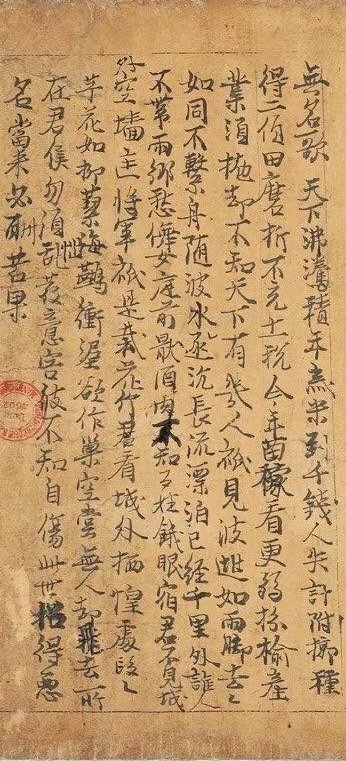 無名歌 天下沸騰積年歲米到千錢人失計附郭種
得二頃田磨折不充十一稅今年苗稼看更弱枌榆產
業須抛却不知天下有幾人祇見波逃如雨脚去〻
如同不繫舟随波水逐泛長流漂泊已經千里外誰人
不帶兩鄉愁儛女庭前猒酒肉不知百姓餓眼宿君不見城
外空墻將軍祇是栽花竹君看城外栖惶處段〻
芧花如柳絮海鷰銜泥欲作巢空堂無人却飛去所
在君侯勿須亂發意害彼不知自傷此世招得惡
名當來必酬苦果